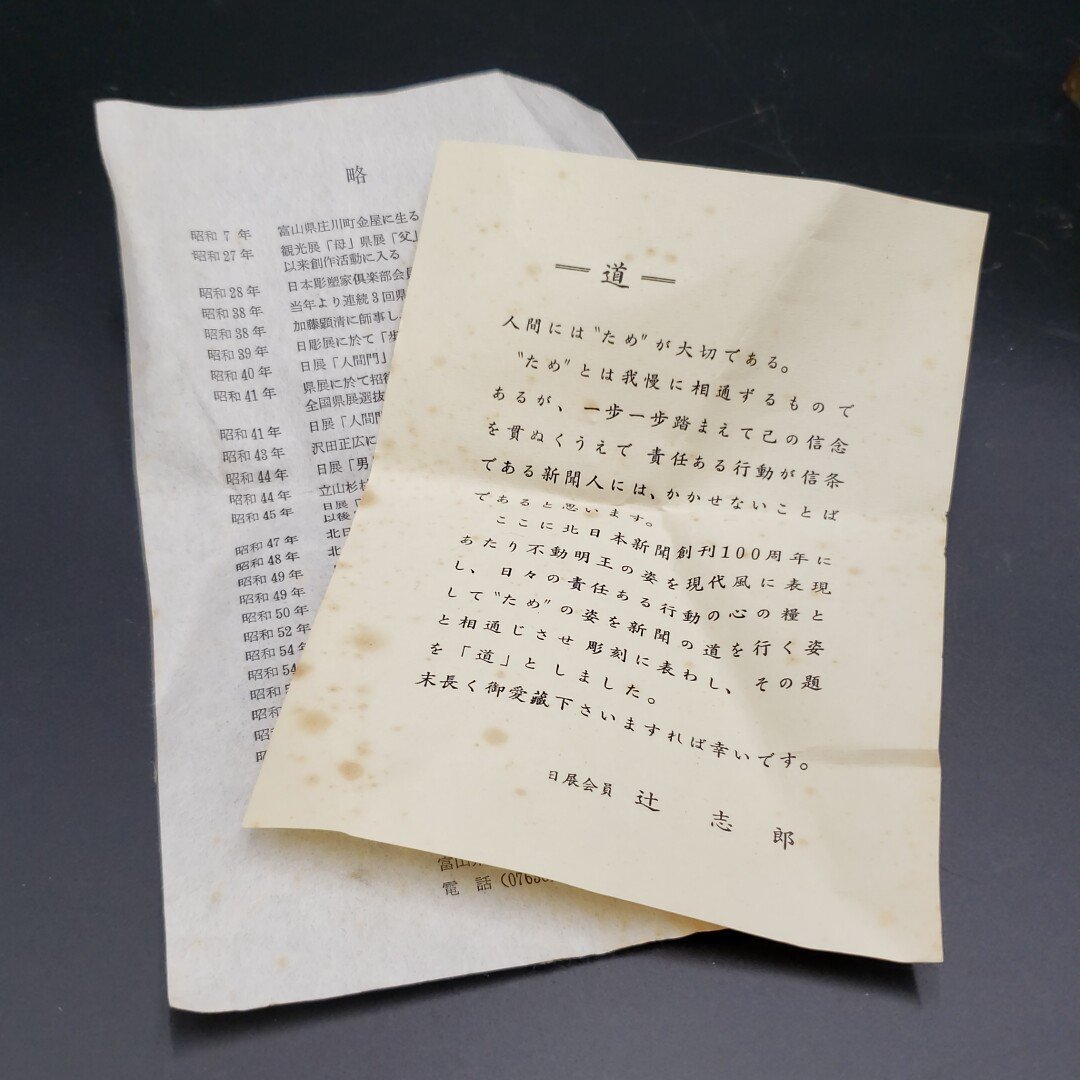 略
昭和 7 年 富山県庄川町金屋に生る
昭和 27 年 観光展「母」県展「父」
以来創作活動に入る
昭和 28 年 日本彫塑家倶楽部会員
昭和 38 年 当年より連続3回県
昭和 38 年 加藤顕清に師事し
昭和 39 年 日彫展に於て「歩
昭和 40 年 日展「人間門」
昭和 41 年 県展に於て招待
全国県展選抜
昭和 41 年 日展「人間門
昭和 43 年 沢田正広に
昭和 44 年 日展「男
昭和 44 年 立山杉
昭和 45 年 日展「
以後
昭和 47 年 北日
昭和 48 年 北
昭和 49 年
昭和 49 年
昭和 50 年
昭和 52 年
昭和 54 年
昭和 54
昭和
昭和
富山
電 話
━ 道 ━
人間には〝ため〟が大切である。
〝ため〟とは我慢に相通ずるもので
あるが、一歩一歩踏まえて己の信念
を貫ぬくうえで 責任ある行動が信条
である新聞人には、かかせないことば
であると思います。
ここに北日本新聞創刊100周年に
あたり不動明王の姿を現代風に表現
し、日々の責任ある行動の心の糧と
して〝ため〟の姿を新聞の道を行く姿
と相通じさせ彫刻に表わし、その題
を「道」としました。
末長く御愛蔵下さいますれば幸いです。
日展会員 辻 志 郎